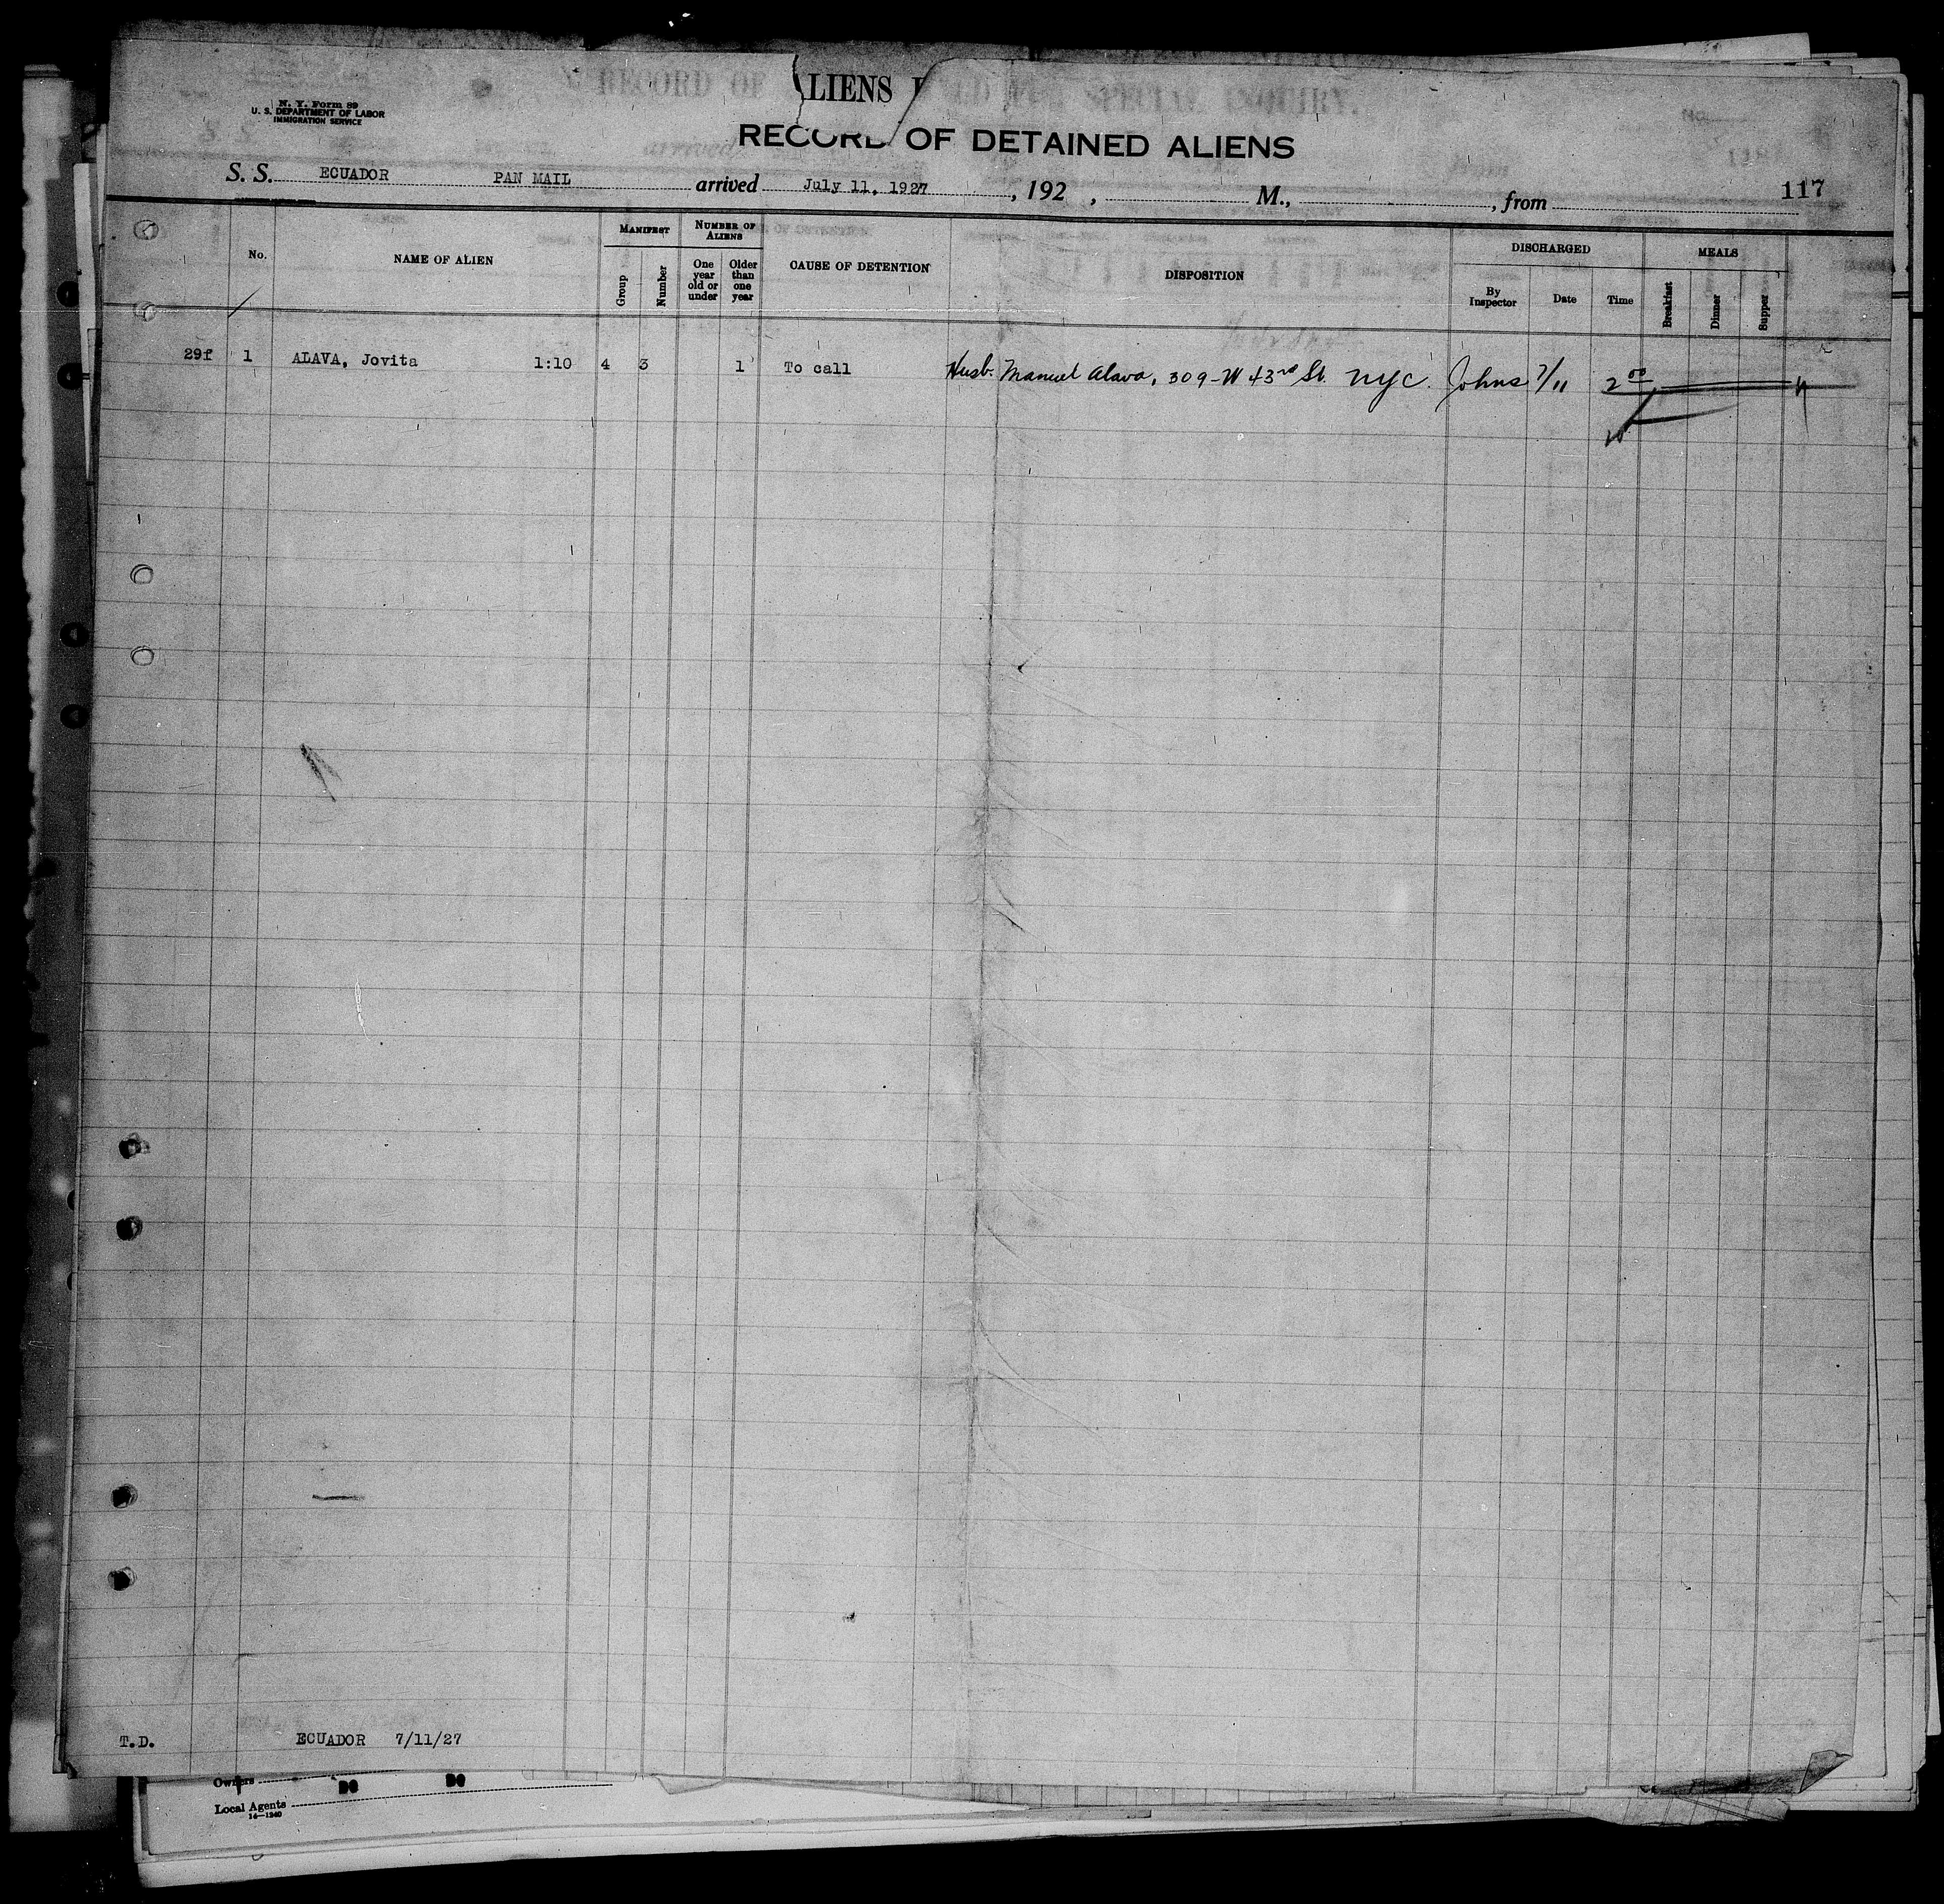 LIENS
N. Y. Form 89
U. S. DEPARTMENT OF LABOR
IMMIGRATION SERVICE
RECORD OF DETAINED ALIENS
S. S. ECUADOR PAN MAIL arrived July 11, 1927, 192 , M., , from 117
No. NAME OF ALIEN MANIFEST Group Number NUMBER OF ALIENS One year old or under Older than one year CAUSE OF DETENTION DISPOSITION DISCHARGED By Inspector Date Time MEALS Breakfast Dinner Supper
29f 1 ALAVA, Jovita 1:10 4 3 1 To call Husb. Manuel Alava, 309-W 43rd St. NYC. Johns 7/11 2 00
T.D. ECUADOR 7/11/27
Owners
Local Agents
14-1240